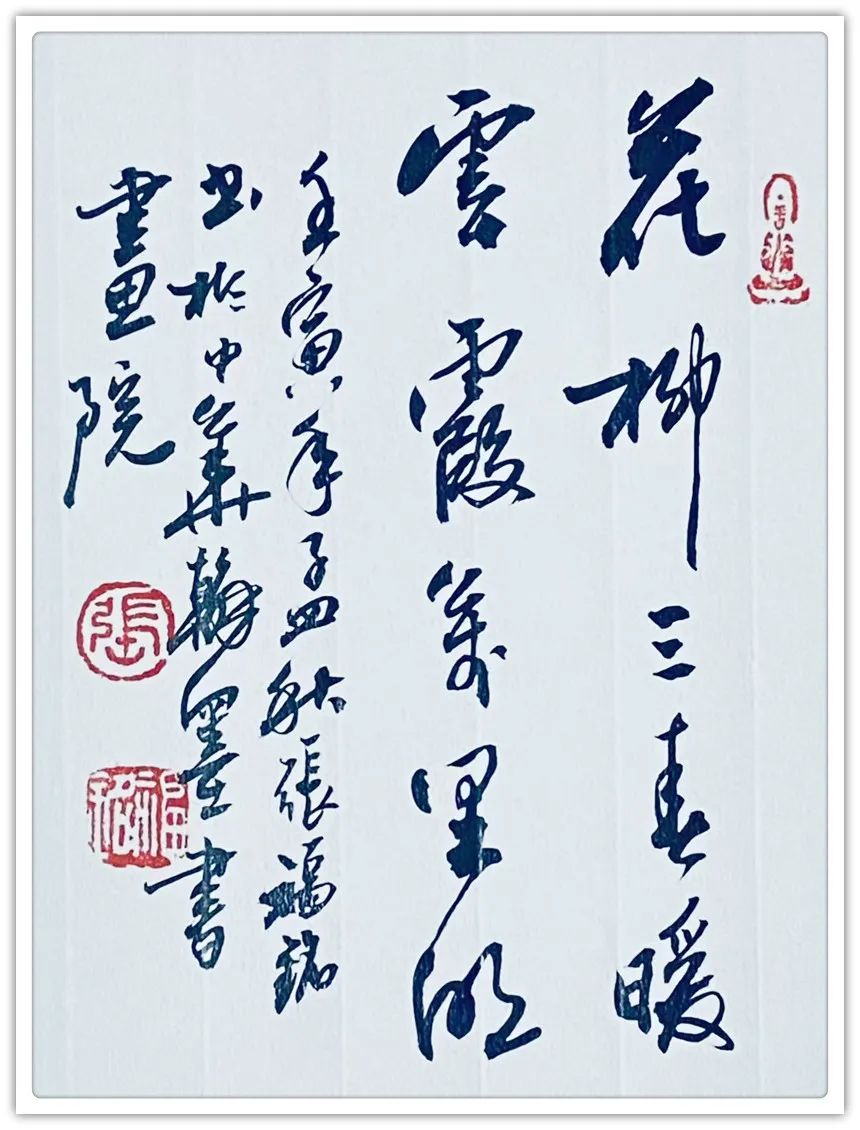 花柳三春暖
雲霞萬里明
壬寅年孟秋張福
书於中華翰墨書
畫院
張